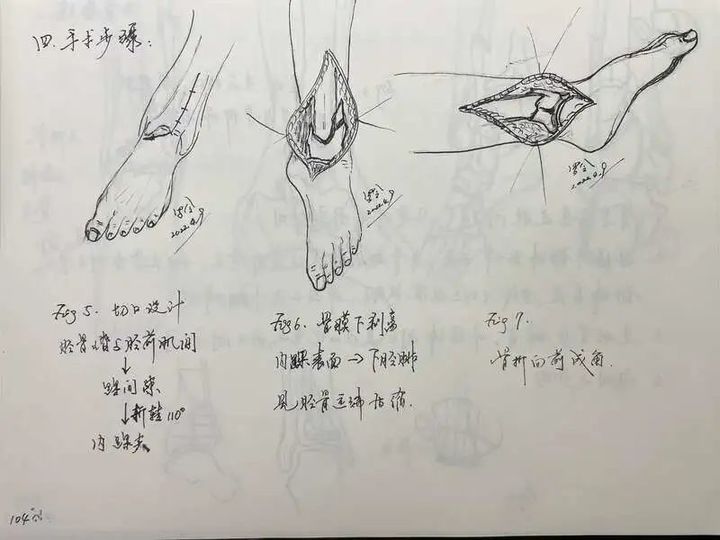 四.手术步骤:
2022.4.9
2022.4.9
2022.4.9
Fig 5. 切口设计
胫骨嵴与胫前肌间
↓
踝间隙
↓折转110°
内踝尖
Fig 6. 骨膜下剥离
内踝表面→下胫腓
见胫骨远端
Fig 7.
骨折向前成角.